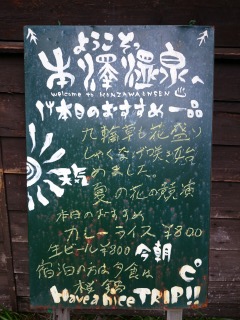 ようこそ
本澤温泉へ
welcome to HONZAWAONSEN
本日のおすすめ一品
九輪草も花盛り
しゃくなげ咲き始
めました。
天気
夏の花の競演
本日のおすすめ
カレーライス ¥800
生ビール ¥800
今朝
℃
宿泊の方は夕食は
桜鍋
Have a nice TRIP!!